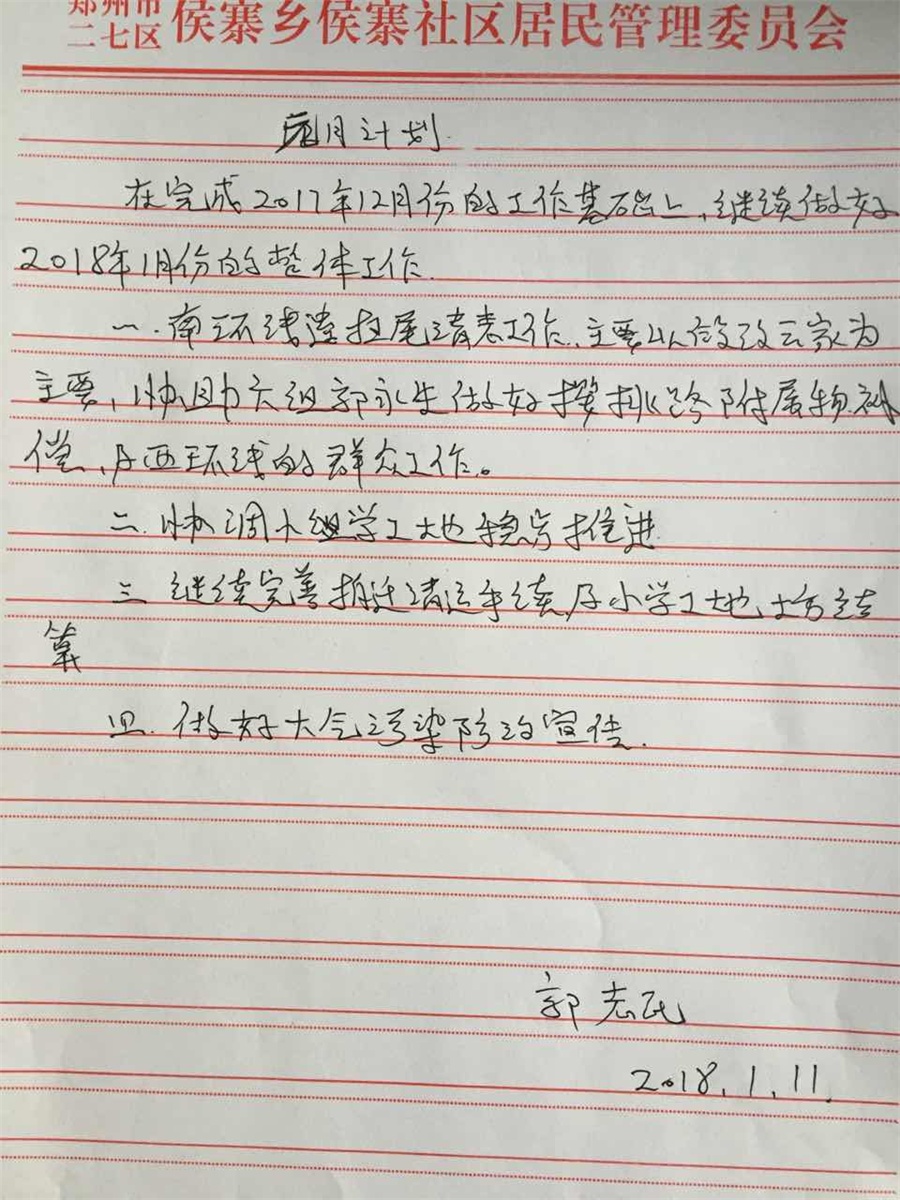 郑州市
二七区 侯寨乡侯寨社区居民管理委员会
月计划
在完成2017年12月份的工作基础上,继续做好
2018年1月份的整体工作.
一.南环线遗扫尾清表工作.主要以 家为
主要,协助六组郭永生做好 路附属物补
偿、及西环线的群众工作。
二.协调小组学工地稳步推进
三 继续完善拆迁清运手续及小学工地土方结
算
四.做好大气污染防治宣传.
郭志民
2018.1.11.